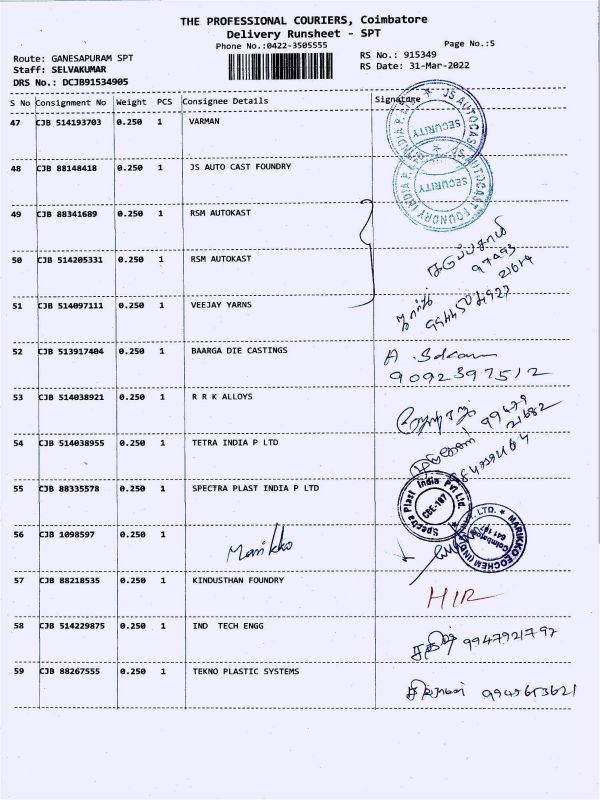 THE PROFESSIONAL COURIERS, Coimbatore
Delivery Runsheet - SPT
Phone No.:0422-3505555
Page No.:5
Route: GANESAPURAM SPT
RS No.: 915349
Staff: SELVAKUMAR
RS Date: 31-Mar-2022
DRS No.: DCJB91534905
S No Consignment No Weight PCS Consignee Details Signature
47 CJB 514193703 0.250 1 VARMAN
SECURITY
48 CJB 88148418 0.250 1 JS AUTO CAST FOUNDRY
SECURITY
49 CJB 88341689 0.250 1 RSM AUTOKAST
50 CJB 514205331 0.250 1 RSM AUTOKAST
97493
51 CJB 514097111 0.250 1 VEEJAY YARNS
52 CJB 513917404 0.250 1 BAARGA DIE CASTINGS
9092397512
53 CJB 514038921 0.250 1 R R K ALLOYS
99479
54 CJB 514038955 0.250 1 TETRA INDIA P LTD
55 CJB 88335578 0.250 1 SPECTRA PLAST INDIA P LTD
Spectra Plast India Pvt Ltd.
CBE-107
56 CJB 1098597 0.250 1 Marikko
MARIKKO EOCHEM (INDIA) PVT. LTD.
Coimbatore
641 107
57 CJB 88218535 0.250 1 KINDUSTHAN FOUNDRY
HIR
58 CJB 514229875 0.250 1 IND TECH ENGG
9947921792
59 CJB 88267555 0.250 1 TEKNO PLASTIC SYSTEMS